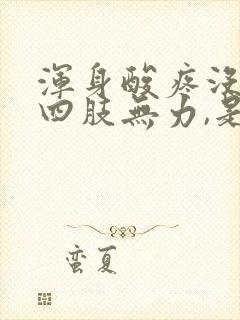 渾身酸疼沒
四肢無力,是
蠻夏